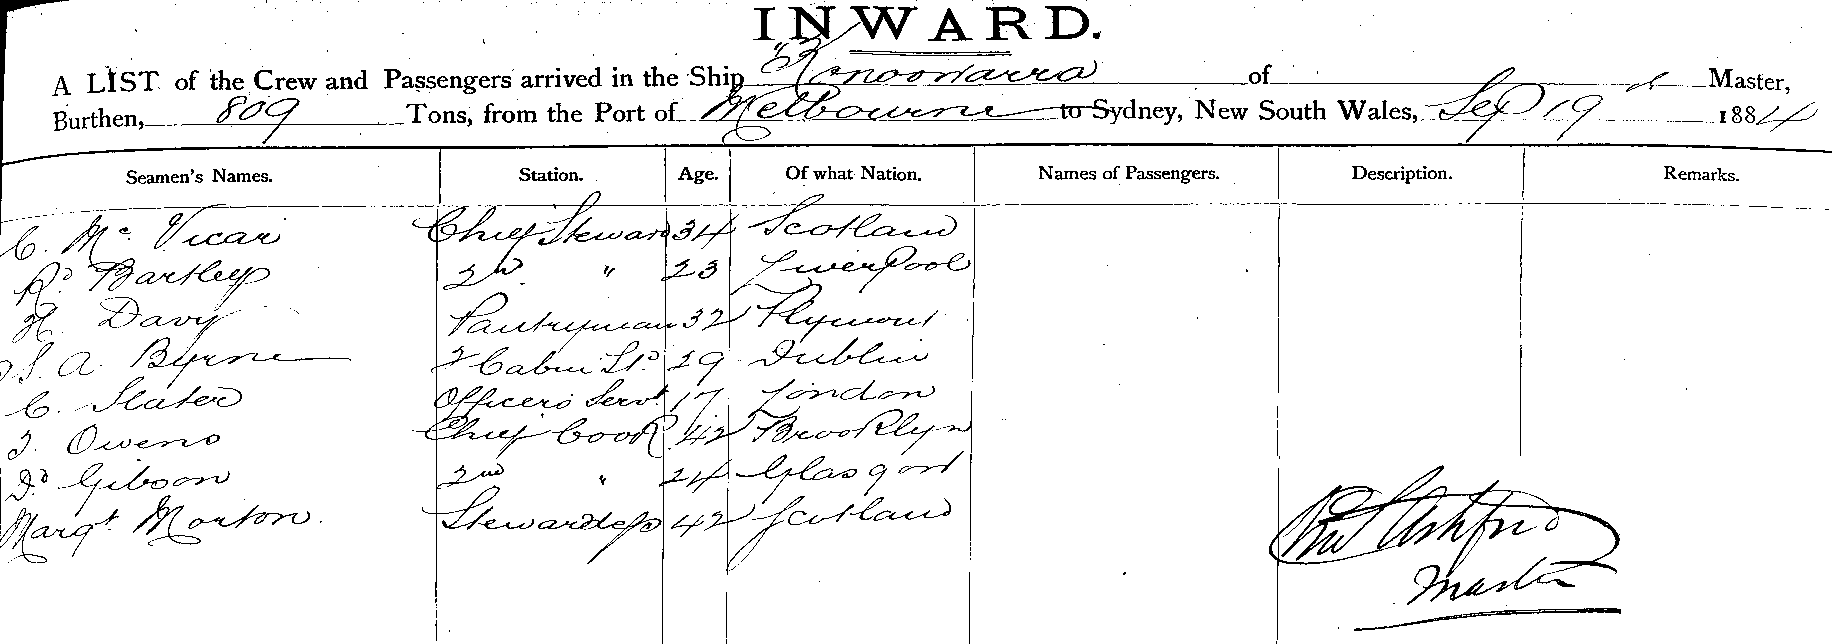 INWARD.
A LIST of the Crew and Passengers arrived in the Ship "Konoowarra of Master,
Burthen, 809 Tons, from the Port of Melbourne to Sydney, New South Wales, Sep 19th 1884
Seamen's Names. Station. Age. Of what Nation. Names of Passengers. Description. Remarks.
C. Mc Vicar Chief Steward 34 Scotland
Rd Bartley 2nd " 23 LiverPool
H. Davy Pantryman 32 Plymout
J. A. Byrne 2 Cabin Std 29 Dublin
C. Slater Officers Servt 17 London
T. Owens Chief Cook 42 Brooklyn
Dd Gibson 2nd " 24 Glasgow
Margt Morton. Stewardess 42 Scotland
Ashford
Master